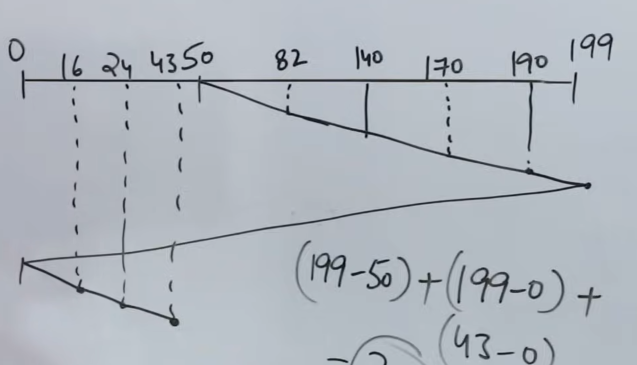 0 16 24 43 50 82 140 170 190 199
(199-50)+(199-0)+
(43-0)
=